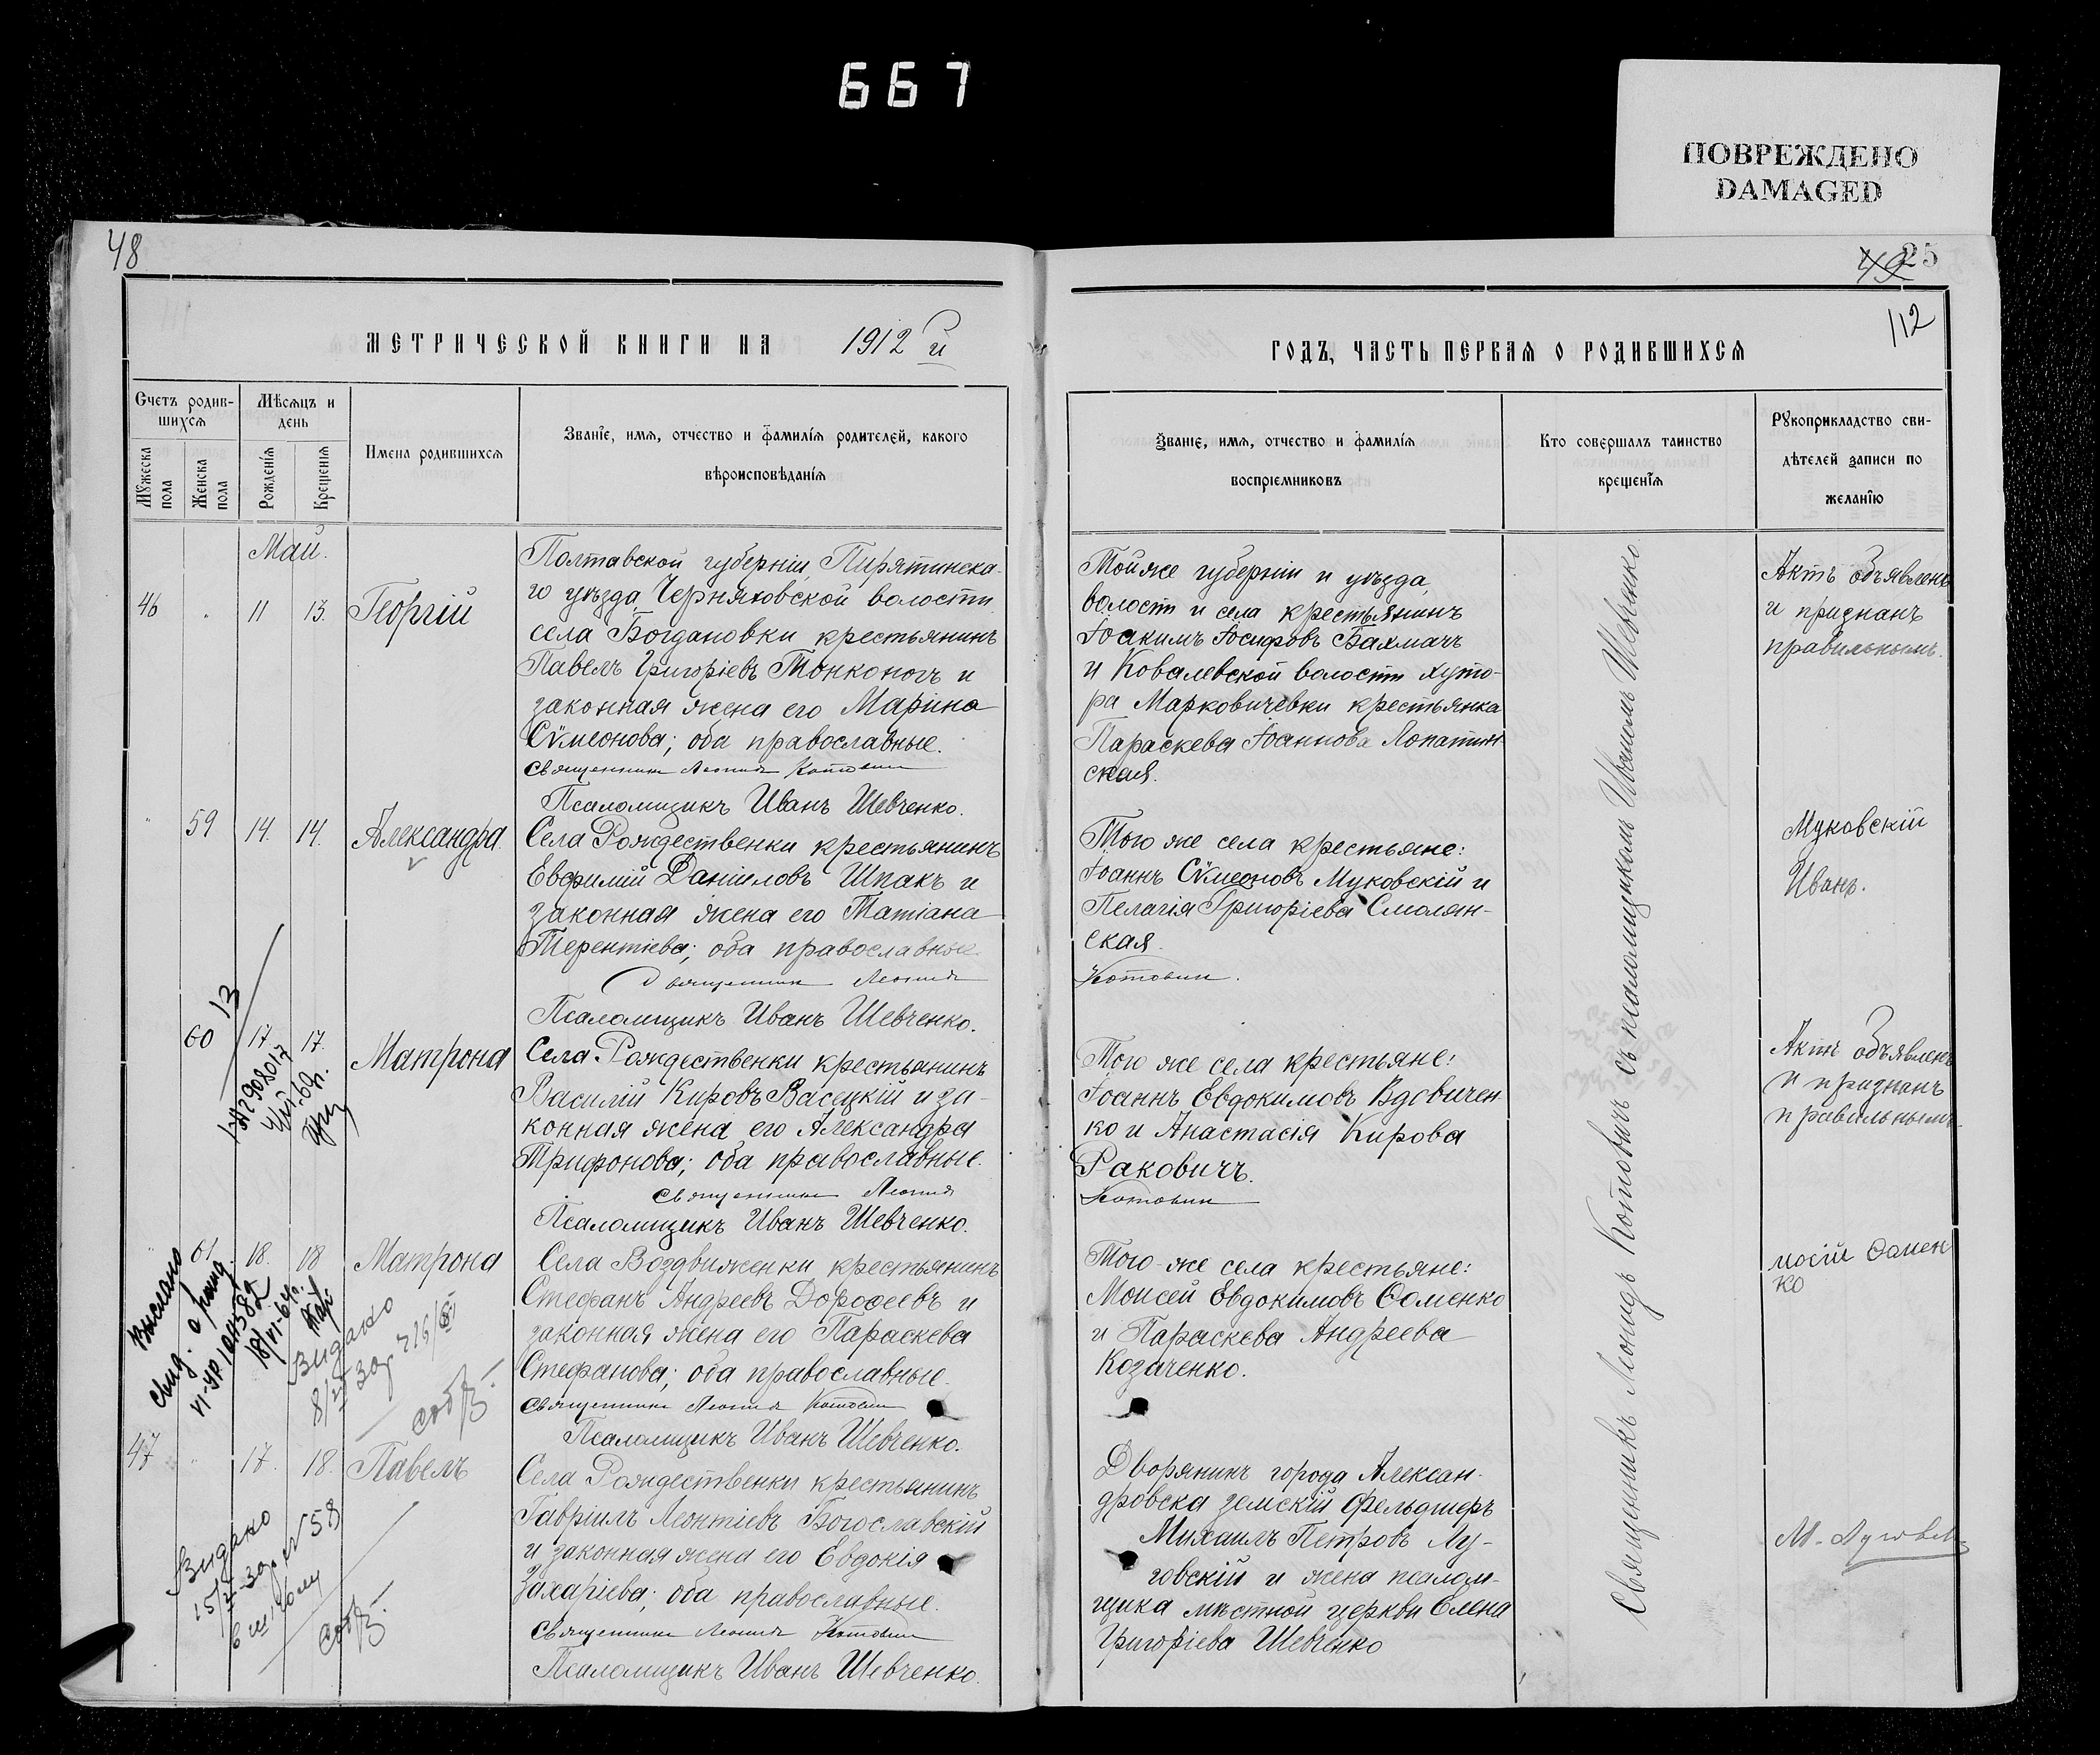 667
ПОВРЕЖДЕНО
DAMAGED
48
МЕТРИЧЕСКОЙ КНИГИ НА 1912 й
Счетъ родив-
шихся
Мѣсяцъ и
день
Мужеска
пола
Женска
пола
Рожденія
Крещенія
Имена родившихся
Званіе, имя, отчество и фамилія родителей, какого
вѣроисповѣданія
Май.
46 " 11 13. Георгій
Полтавской губерніи, Пирятинска-
го уѣзда, Черняховской волости
села Богдановки крестьянинъ
Павелъ Григоріевъ Тонконогъ и
законная жена его Марина
Сѵмеонова; оба православные.
Священникъ Леонидъ Котовичъ
Псаломщикъ Иванъ Шевченко.
" 59 14. 14. Александра
Села Рождественки крестьянинъ
Евфимій Даніиловъ Шпакъ и
законная жена его Татіана
Терентіева; оба православные
Священникъ Леонидъ
Псаломщикъ Иванъ Шевченко.
60 17. 17. Матрона
Села Рождественки крестьянинъ
Василій Кировъ Васецкій и за-
конная жена его Александра
Трифонова; оба православные.
Священникъ Леонидъ
Псаломщикъ Иванъ Шевченко.
" 61 18. 18 Матрона
Села Воздвиженки крестьянинъ
Стефанъ Андреевъ Дороѳеевъ и
законная жена его Параскева
Стефанова; оба православные.
Священникъ Леонидъ Котовичъ
Псаломщикъ Иванъ Шевченко.
47 " 17. 18. Павелъ
Села Рождественки крестьянинъ
Гавріилъ Леонтіевъ Богославскій
и законная жена его Евдокія
Захаріева; оба православные.
Священникъ Леонидъ Котовичъ
Псаломщикъ Иванъ Шевченко.
13
Выслано
свид. о рожд.
Видано
Видано
49 25
112
ГОДЪ, ЧАСТЬ ПЕРВАЯ О РОДИВШИХСЯ
Званіе, имя, отчество и фамилія
воспріемниковъ
Кто совершалъ таинство
крещенія
Рукоприкладство сви-
дѣтелей записи по
желанію
Тойже губерніи и уѣзда,
волости и села крестьянинъ
Іоакимъ Іосифовъ Бахмачъ
и Ковалевской волости хуто-
ра Марковичевки крестьянка
Параскева Іоаннова Лопатин-
ская.
Того же села крестьяне:
Іоаннъ Сѵмеоновъ Муковскій и
Пелагія Григоріева Смолян-
ская.
Котовичъ.
Того же села крестьяне:
Іоаннъ Евдокимовъ Вдовичен
ко и Анастасія Кирова
Раковичъ.
Котовичъ
Того-же села крестьяне:
Моисей Евдокимовъ Ѳоменко
и Параскева Андреева
Козаченко.
Дворянинъ города Алексан-
дровска земскій фельдшеръ
Михаилъ Петровъ Лу-
говскій и жена псалом-
щика мѣстной церкви Елена
Григоріева Шевченко
Священникъ Леонидъ Котовичъ съ псаломщикомъ Иваномъ Шевченко
Актъ объявленъ
и признанъ
правильнымъ.
Муковскій
Иванъ.
Актъ объявленъ
и признанъ
правильнымъ.
мосій Ѳомен
ко